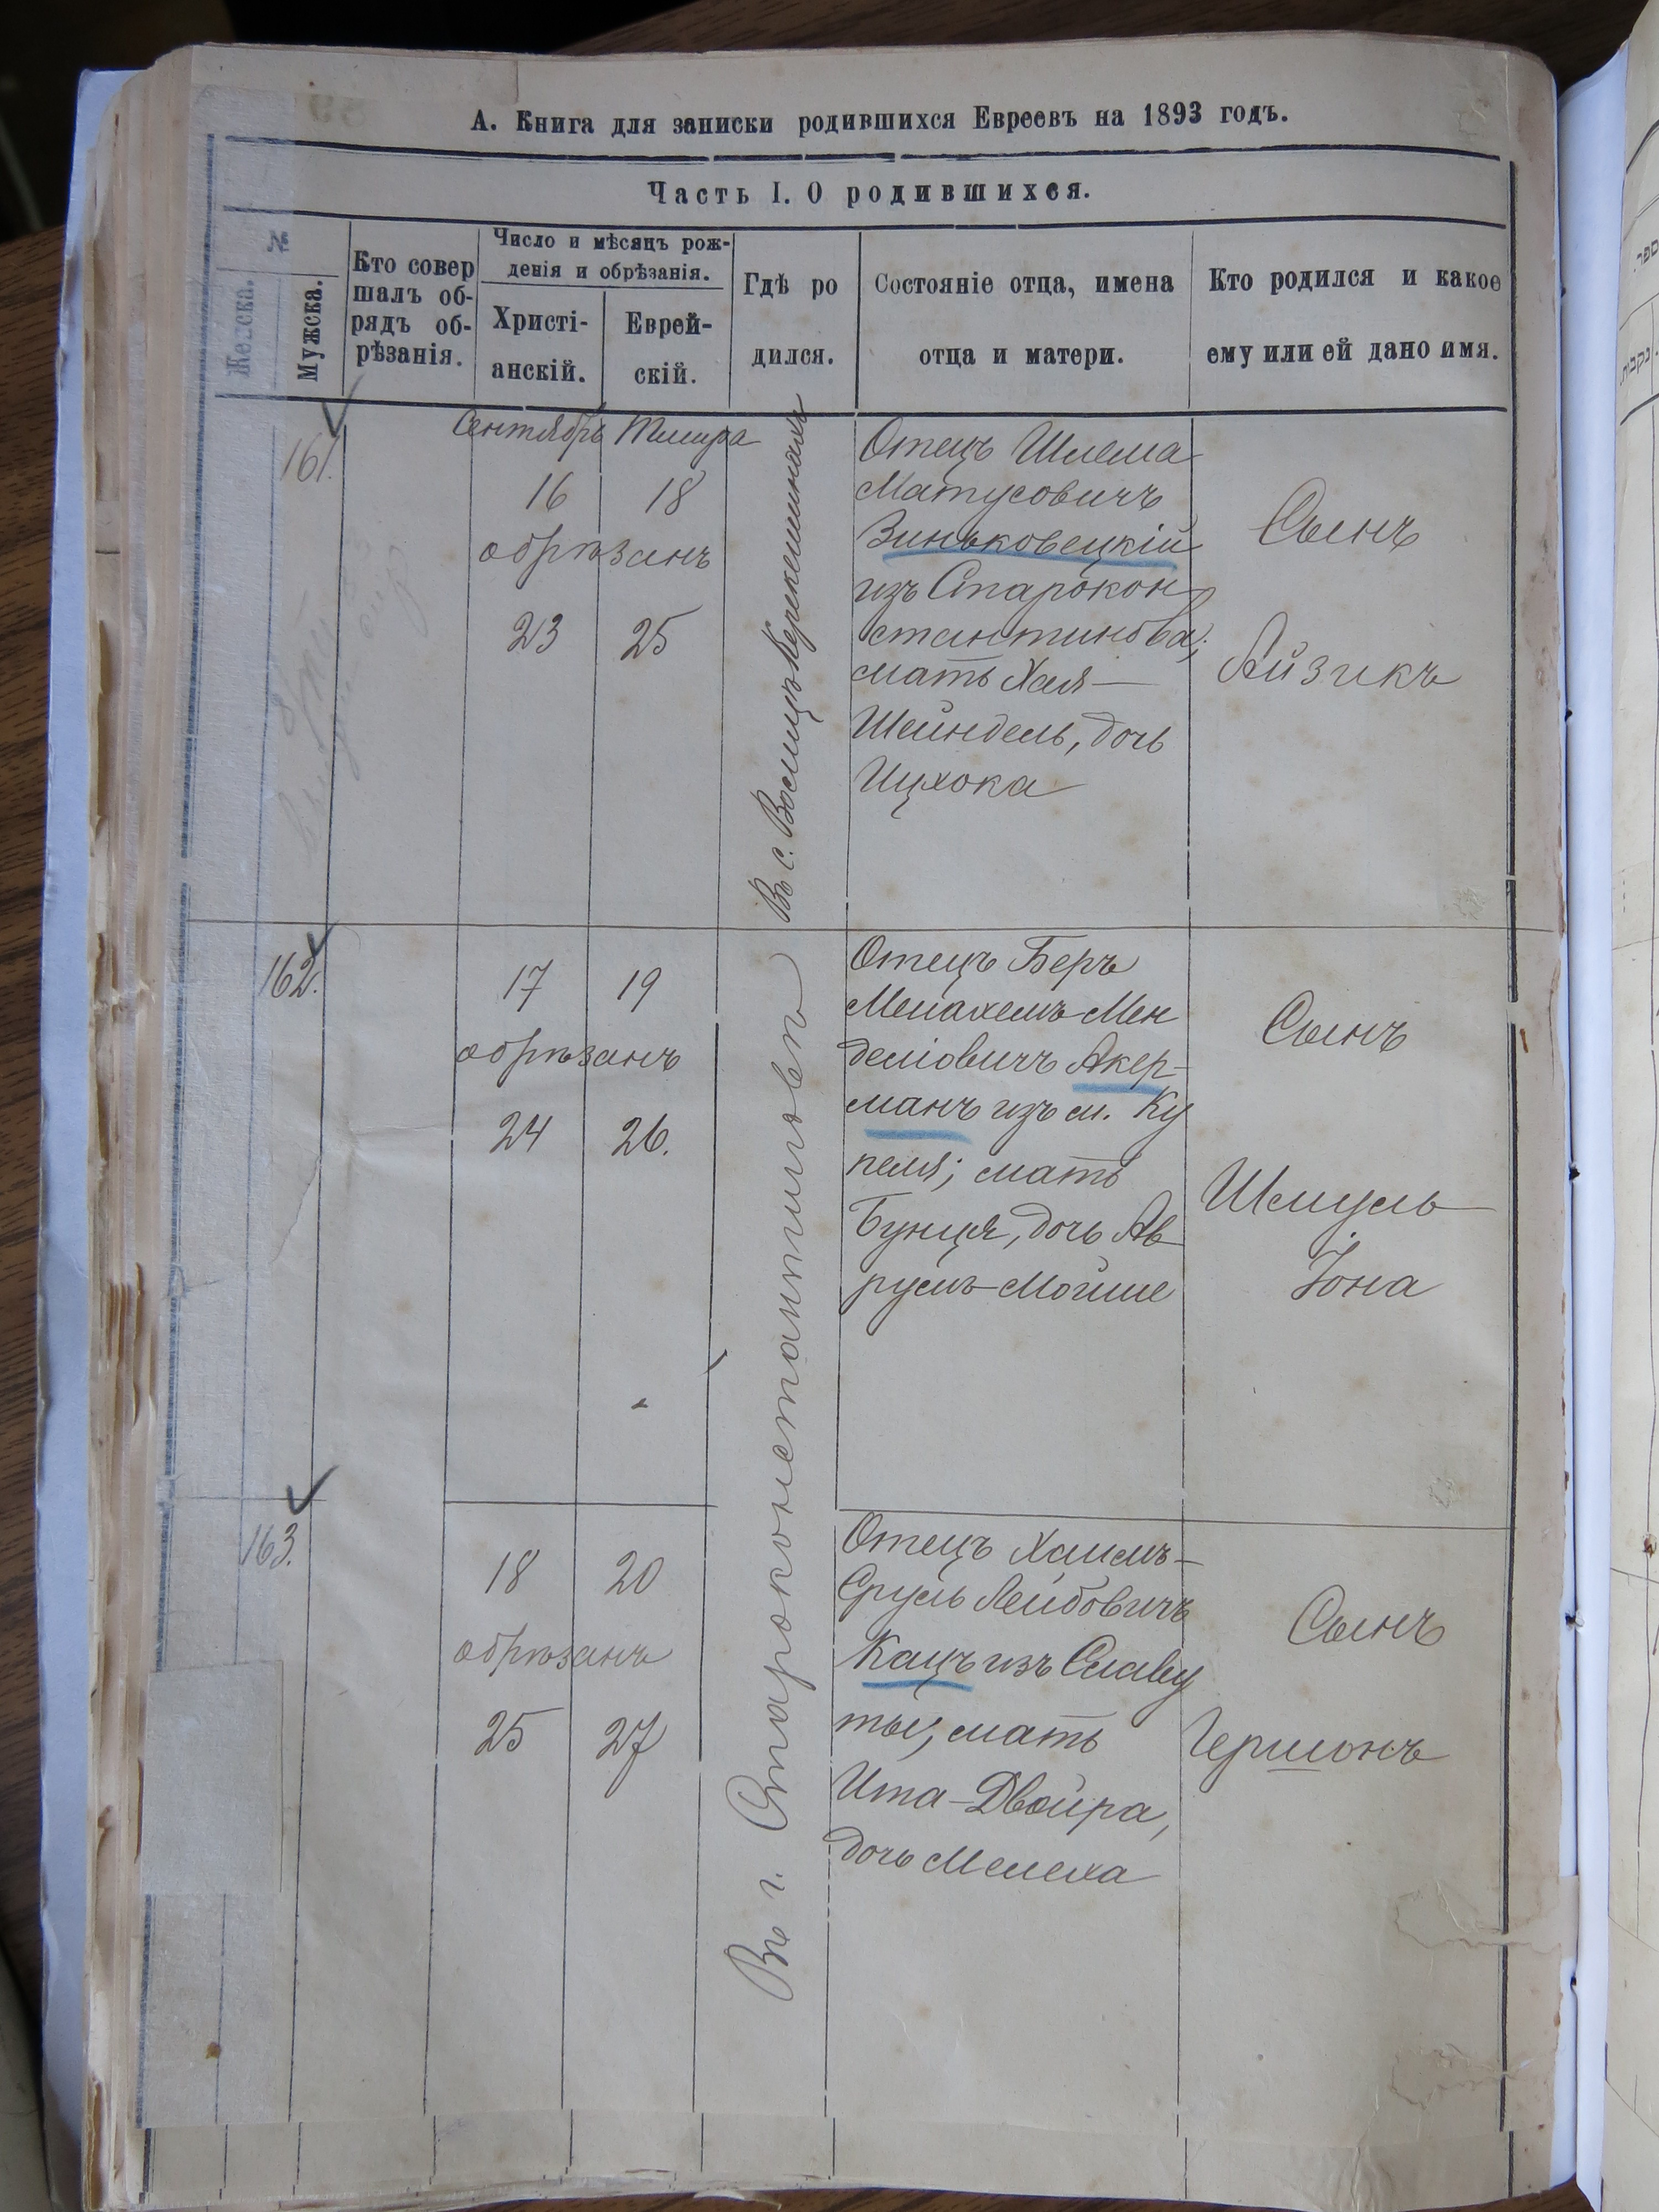 А. Книга для записки родившихся Евреевъ на 1893 годъ.
Часть I. О родившихся.
№
Женска.
Мужска.
Кто совер
шалъ об-
рядъ об-
рѣзанія.
Число и мѣсяцъ рож-
денія и обрѣзанія.
Христі-
анскій.
Еврей-
скій.
Гдѣ ро
дился.
Состояніе отца, имена
отца и матери.
Кто родился и какое
ему или ей дано имя.
161.
Сентябрь Тишра
16 18
обрѣзанъ
23 25
Въ с.
Отецъ Шлема
Матусовичъ
Зиньковецкій
изъ Старокон
стантинова;
мать Хая-
Шейндель, дочь
Ицхока
Сынъ
Айзикъ
162.
17 19
обрѣзанъ
24 26.
Въ г. Староконстантиновѣ
Отецъ Беръ
Менахемъ-Мен
деліовичъ Акер-
манъ изъ м. Ку
пеля; мать
Бунця, дочь Ав
румъ-Мойше
Сынъ
Шмуль-
Іона
163.
18 20
обрѣзанъ
25 27
Отецъ Хаимъ-
Сруль Лейбовичъ
Кацъ изъ Славу
ты; мать
Ита-Двойра,
дочь Мелеха
Сынъ
Гершонъ